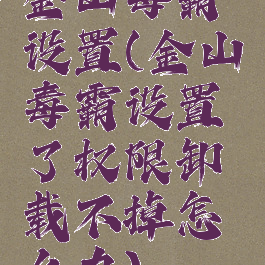 金山毒霸
设置(金山
毒霸设置
了权限卸
载不掉怎
么办)